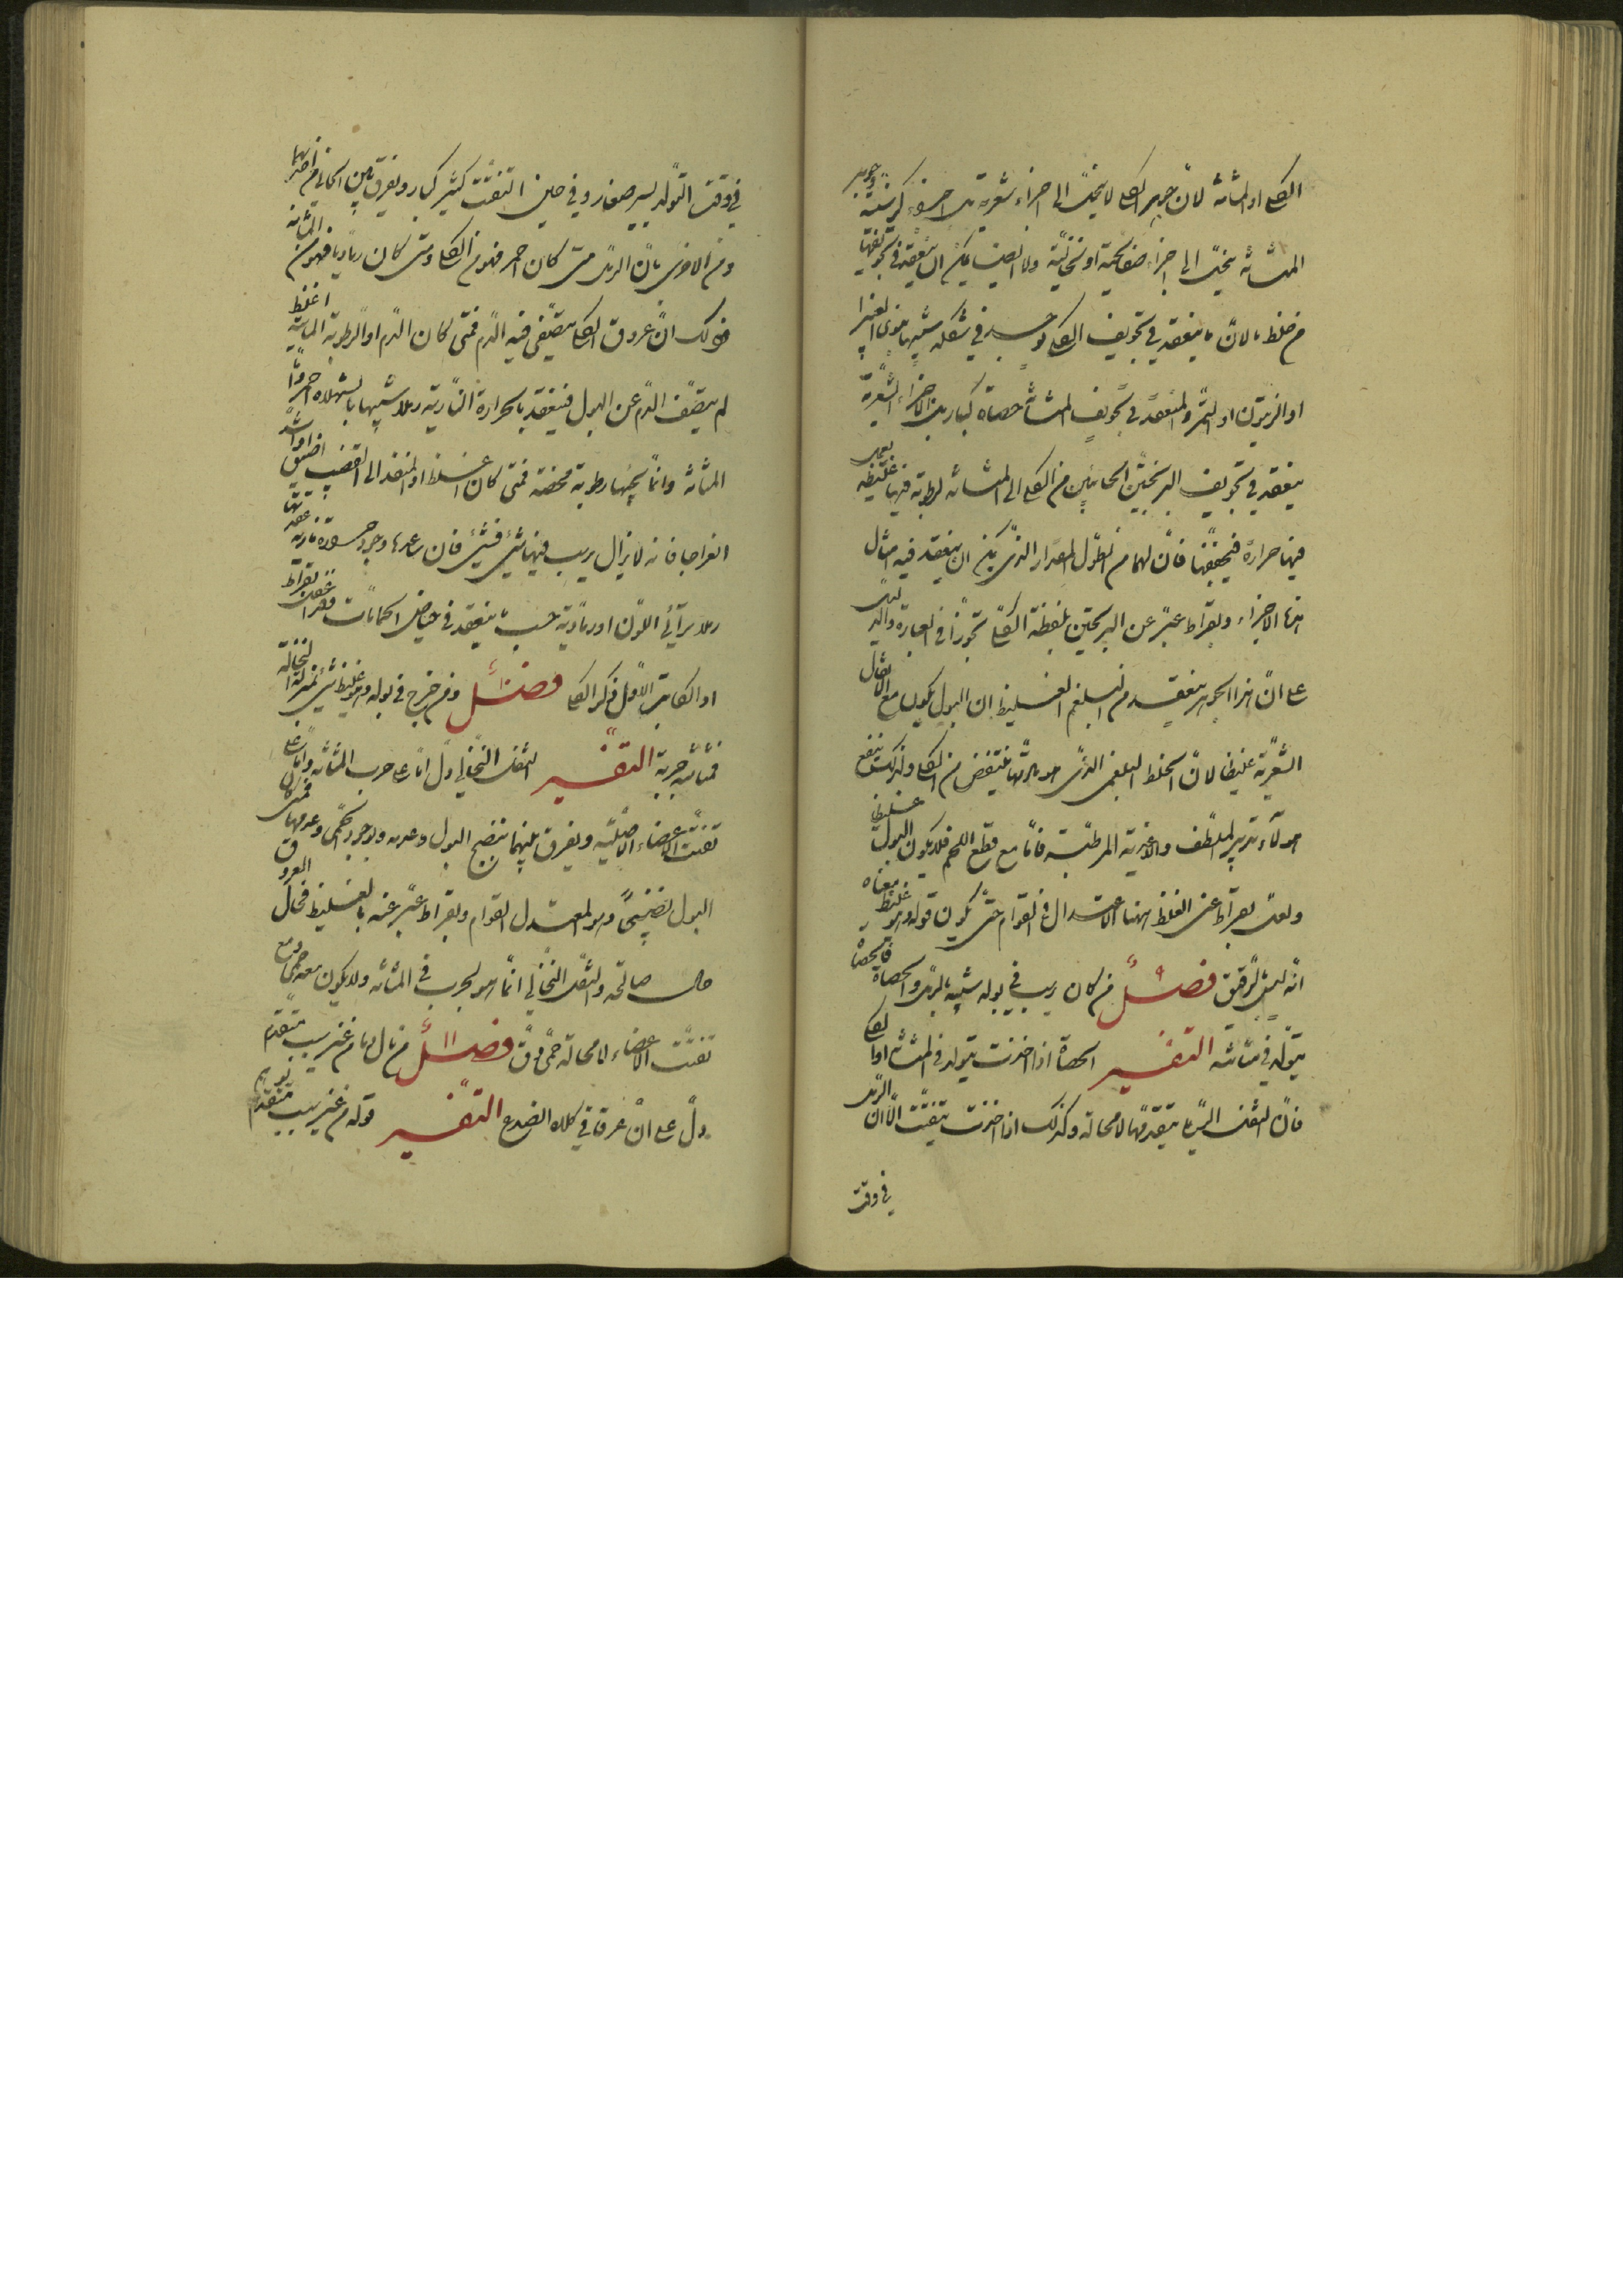 الكلى او المثانة لانّ جوهر الكلى لا ينحلّ الى اجزاء شعرية بل اجزاء كرسنية وجوهر
المثانة ينحلّ الى اجزاء صفايحية او نخالية ولا ايضا يمكن ان ينعقد في تجويفها
من خلط ما لانّ ما ينعقد في تجويف الكلى يوجد في شكله شبيها بنوى الغبيرا
او الزيتون او التمر والمنعقد في تجويف المثانة حصاة كبار بل الاجزاء الشعرية
ينعقد في تجويف البربخين الجائيين من الكلى الى المثانة لرطوبة فيها غليظة يعمل
فيها حرارة فيجففها فانّ لهما من الطول المقدار الذي يمكن ان ينعقد فيه امثال
هذه الاجزاء وبقراط عبّر عن البربخين بلفظة الكلى تجوزا في العبارة والدليل
على انّ هذا الجوهر ينعقد من البلغم الغليظ ان البول يكون مع الاثقال
الشعرية غليظا لانّ الخلط البلغمي الذي هو مادتها ينتفض من الكلى ولذلك ينتفع
هولاء بتدبير الملطف والاغذية المرطبة فامّا مع قطع اللحم فلا يكون البول غليظا
ولعل بقراط عنى بالغلظ ههنا الاعتدال في القوام حتى يكون قوله وهو غليظ معناه
انّه ليس برقيق فصل ٩ من كان يرسب في بوله شبيه بالرمل والحصاة فالحصاة
يتولد في مثانته التفسير الحصاة اذا اخذت يتولد في المثانة او الكلى
فانّ الثفل الرملي يتقدمها لا محالة وكذلك اذا اخذت يتفتت الّا ان الرمل
في وقت
في وقت التولد يسير صغار وفي حين التفتت كثير كبار ويفرق بين الحالين احدهما
من الاخرى بانّ الرمل متى كان احمر فهو من الكلى ومتى كان رماديا فهو من المثانة
وذلك انّ عروق الكلى يتصفى فيه الدم فمتى كان الدم او الرطوبة المائية اغلظ
لم يتصف الدم عن البول فينعقد بالحرارة النارية رملا شبيها بالسهلة احمر وامّا
المثانة وانما يجيئها رطوبة محضة فمتى كان اغلظ او المنفذ الى القضيب اضيق او اشد
انعراجا فانه لا يزال يرسب فيها شيء فشيء فان ساعدها وجود حرارة نارية عقدتها
رملا تراٮي اللون او رمادية حسب ما ينعقد في حياض الحمامات وبقراط اغفل
او الكاتب الاول ذكر الكلى فصل ١٠ ومن خرج في بوله وهو غليظ شيء بمنزلة النخالة
فمثانته جربة التفسير الثفل النخالي دلّ امّا على جرب المثانة وامّا على
تفتت الاعضاء الاصلية ويفرق بينهما بنضج البول وعدمه وبوجود الحمى وعدمها فمتى كان
البول نضيجا وهو المعتدل القوام وبقراط عبّر عنه بالغليظ فحال العروق
حال صالحة والثفل النخالي انما هو لجرب في المثانة ولا يكون معه حمى ومع
تفتت الاعضاء لا محالة حمى دق فصل ١١ من بال دما من غير سبب متقدم
دلّ على انّ عرقا في كلاه انصدع التفسير قوله من غير سبب متقدم